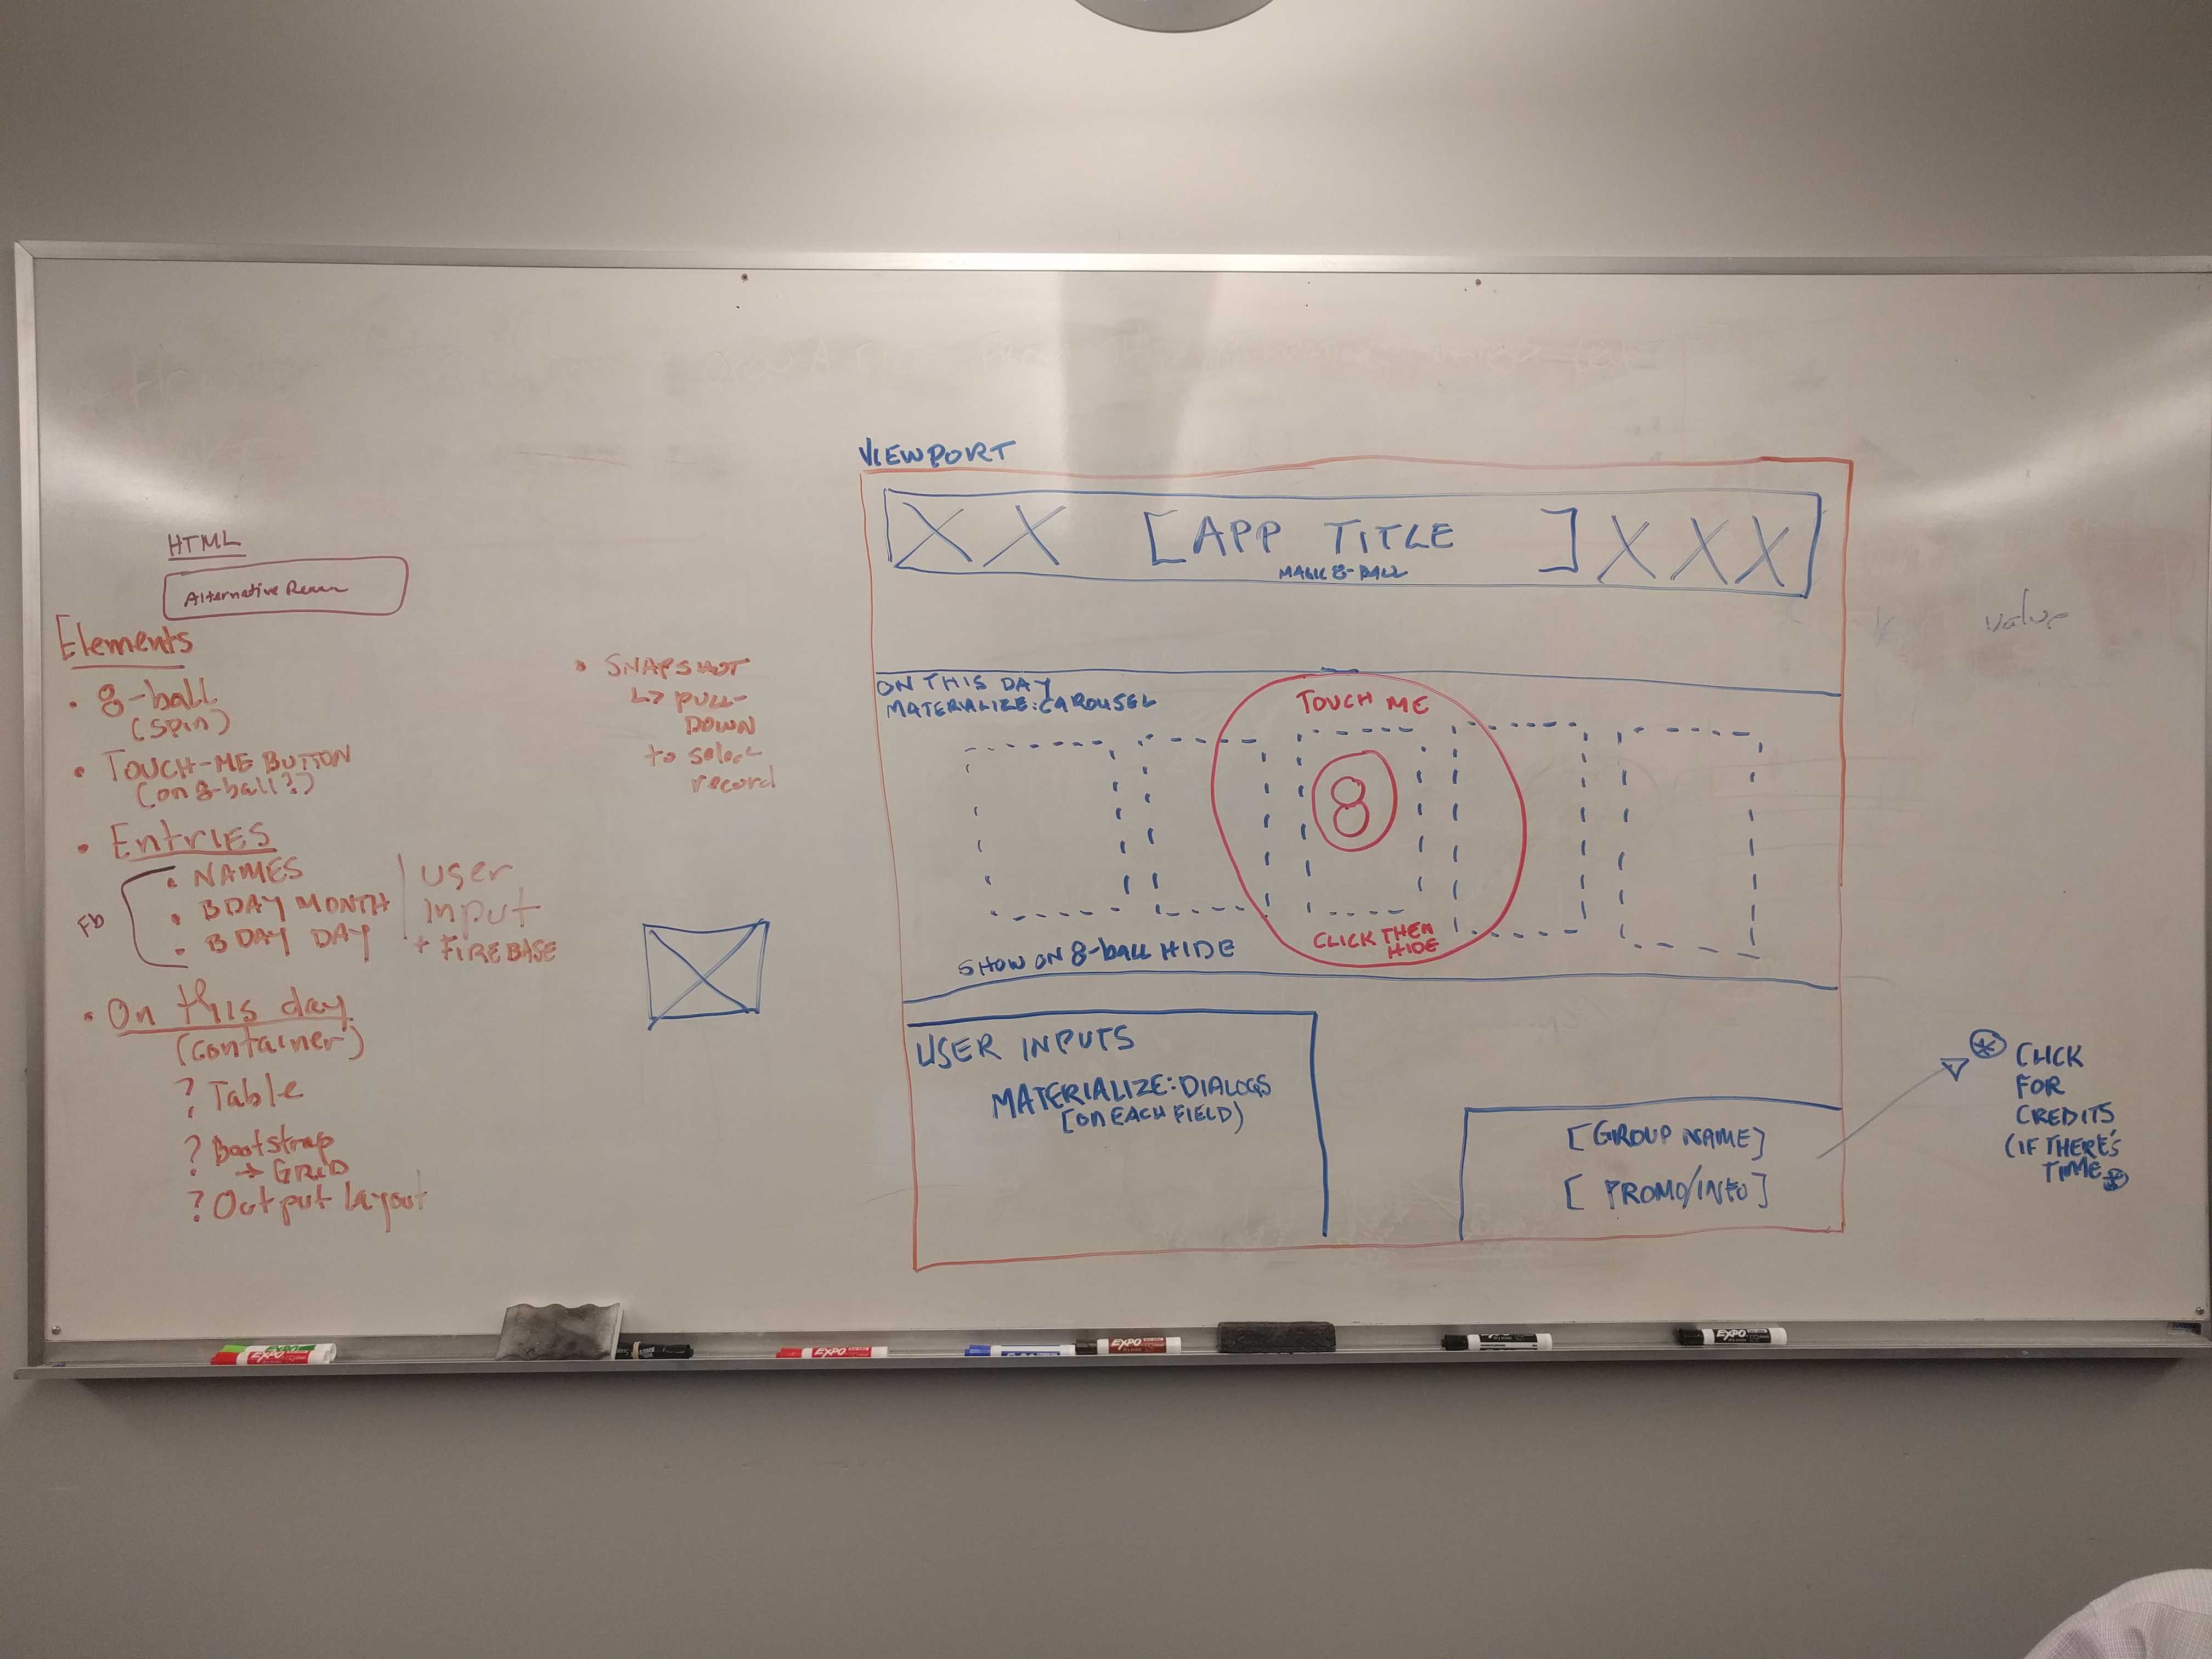 HTML
Alternative
Elements
• 8-ball
(spin)
• TOUCH-ME BUTTON
(on 8-ball?)
• Entries
• NAMES
• BDAY MONTH
• BDAY DAY
Fb
user
input
+ FIREBASE
• On this day
(container)
? Table
? Bootstrap
→ GRID
? Output layout
• SNAPSHOT
↳ PULL-
DOWN
to select
record
VIEWPORT
X X [APP TITLE] X X X
MAGIC 8-BALL
ON THIS DAY
MATERIALIZE: CAROUSEL
TOUCH ME
8
CLICK THEN
HIDE
SHOW ON 8-ball HIDE
USER INPUTS
MATERIALIZE: DIALOGS
[ON EACH FIELD)
[GROUP NAME]
[PROMO/INFO]
* CLICK
FOR
CREDITS
(IF THERE'S
TIME *
value
EXPO
EXPO
EXPO
EXPO
EXPO